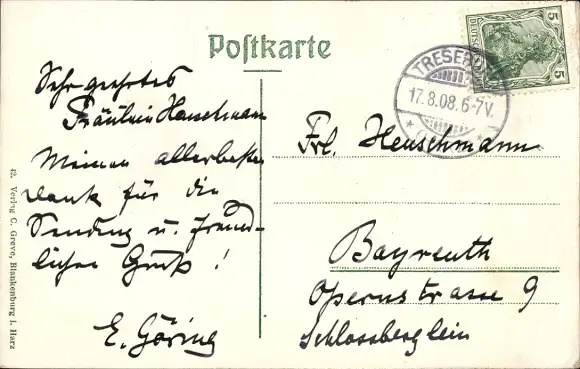 Postkarte
Sehr geehrtes
Fräulein Heuschmann
Meinen allerbesten
Dank für die
Sendung u. freund-
lichen Gruß!
E. Göring
Frl. Heuschmann
Bayreuth
Opernstrasse 9
Schlossberglein
TRESEBURG
17.8.08.6-7V.
5 5
42. Verlag C. Grave, Blankenburg i. Harz